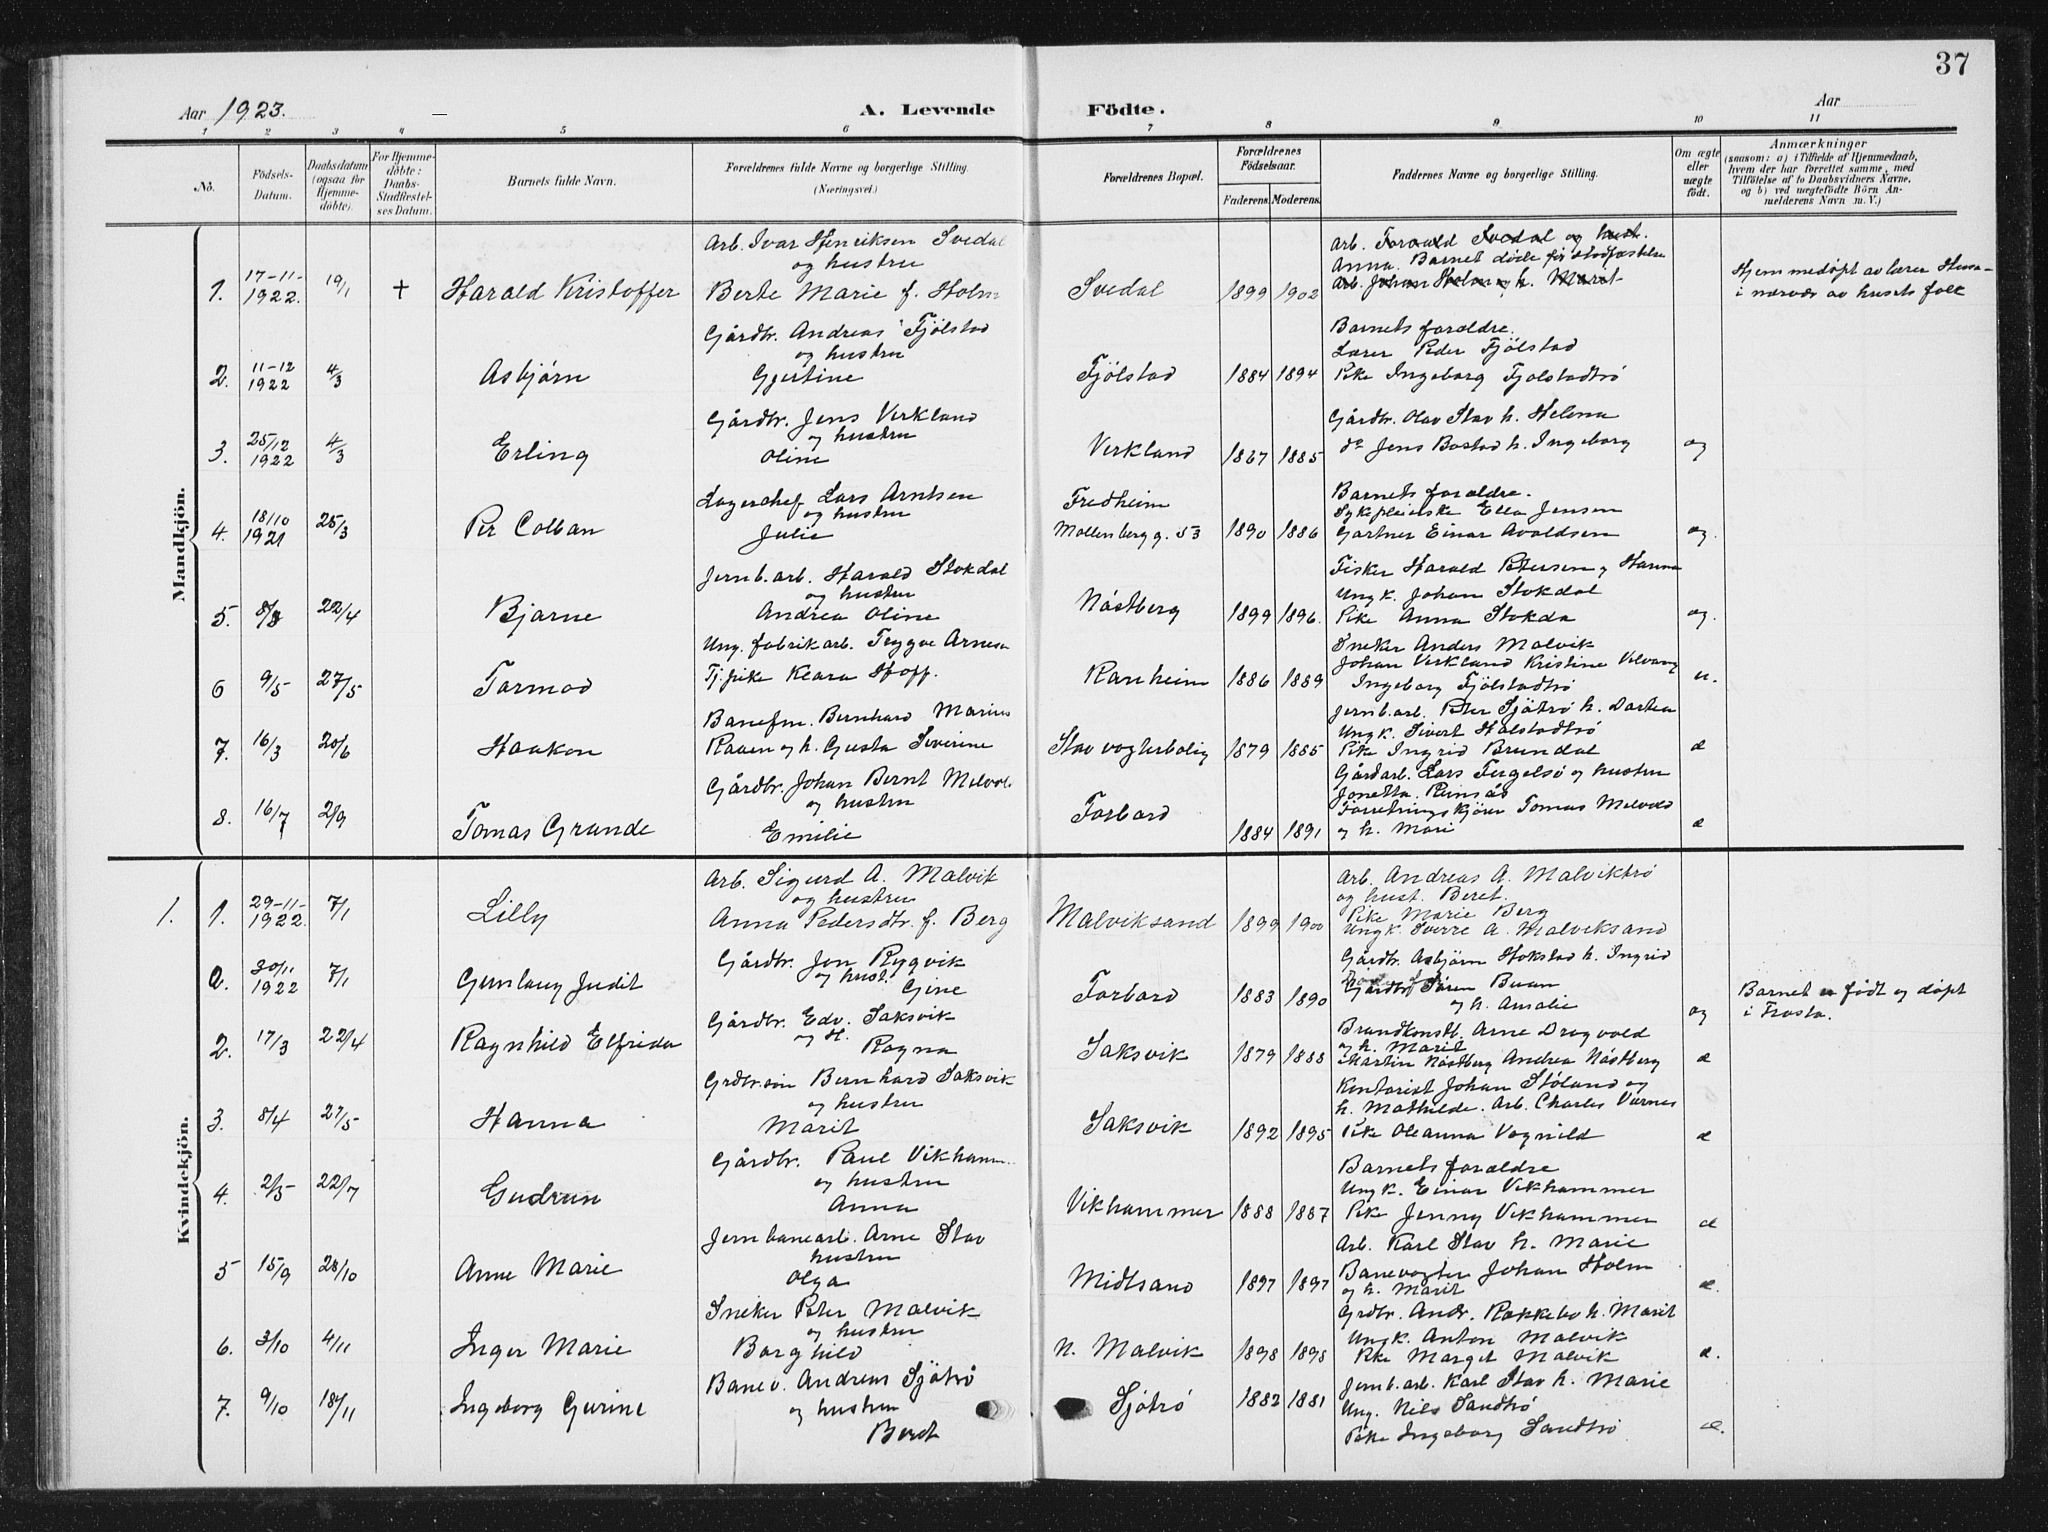 37
Aar 1923.
A. Levende Födte.
Aar
1 2 3 4 5 6 7 8 9 10 11
No.
Födsels-
Datum.
Daabsdatum
(ogsaa for
Hjemme-
döbte).
For Hjemme-
döbte:
Daabs-
Stadfæstel-
ses Datum.
Barnets fulde Navn.
Forældrenes fulde Navne og borgerlige Stilling.
(Næringsvei.)
Forældrenes Bopæl.
Forældrenes
Födselsaar.
Faderens. Moderens.
Faddernes Navne og borgerlige Stilling.
Om ægte
eller
uægte
födt.
Anmærkninger
(saasom: a) i Tilfælde af Hjemmedaab,
hvem der har forrettet samme, med
Tilföielse af to Daabsvidners Navne,
og b) ved uægtefödte Börn An-
melderens Navn m. V.)
Mandkjön.
1.
17-11-
1922.
19/1
+
Harald Kristoffer
Arb. Ivar Henriksen Svedal
og hustru
Berte Marie f. Holm
Svedal
1899 1902
Arb. Svedal og hust.
Anna. Barnet døde før stadfæstelse
Arb. Johan Holm og h. Marit
Hjemmedøpt av lærer
i nærvær av husets folk
2.
11-12
1922
4/3
Asbjørn
Gårdbr. Andreas Fjölstad
og hustru
Gjertine
Fjölstad
1884 1894
Barnets foræ̈ldre.
Lærer Peder Fjölstad
Pike Ingeborg Fjolstadtrö
3.
25/12
1922
4/3
Erling
Gårdbr. Jens Verkland
og hustru
Oline
Verkland
1867 1885
Gårdbr. Olav Stav h. Helena
do Jens Bostad h. Ingeborg
æg
4.
18/10
1921
25/3
Per Colban
Lagerchef Lars Arntsen
og hustru
Julie
Fredheim
Mollenberg g. 53
1890 1886
Barnets forældre.
Sykepleierske Ella Jensen
Gartner Einar Avaldsen
æg.
5.
8/3
22/4
Bjarne
Jernb.arb. Harald Stokdal
og hustru
Andrea Oline
Nåstberg
1899 1896.
Fisker Harald Petersen og Hanna
Ungk. Johan Stokdal
Pike Anna Stokda
æg.
6
9/5
27/5
Tormod
Ung. fabrikarb. Trygve Arnesen
Tj.pike Klara Hoff.
Ranheim
1886 1889
Sneker Anders Malvik
Johan Verkland Kristine Velvang
Ingeborg Fjölstadtrö
u.
7.
16/3
20/6
Haakon
Banefm. Bernhard Marius
Raaen og h. Gusta Severine
Stav vogterbolig
1879 1885
Jernb.arb. Peter Sjötrö h. Dortea
Ungk. Sivert Halstadtrö
Pike Ingrid Brundal
æ
8.
16/7
2/9
Tomas Grande
Gårdbr. Johan Bernt Melvold
og hustru
Emilie
Torbord
1884 1891
Gårdarb. Lars Fergelsö og hustru
Jonetta Reinsås
Forretningskjører Tomas Melvold
og h. Mari
æ
Kvindekjön.
1. 1.
29-11-
1922.
7/1
Lilly
Arb. Sigurd A. Malvik
og hustru
Anna Pedersdtr. f. Berg
Malviksand
1899 1900
Arb. Andreas A. Malviktrö
og hust. Beret.
Pike Marie Berg
Ungk. Sverre A. Malviksand
a.
30/11
1922
7/1
Gunlaug Judit
Gårdbr. Jon Rygvik
og hust.
Gine
Torbord
1883 1890
Gårdbr. Asbjørn Hokstad h. Ingrid
Gårdbr. Søren Buan
og h. Amalie
æg
Barnet er født og døpt
i Frosta.
2.
17/3
22/4
Ragnhild Elfrida
Gårdbr. Edv. Saksvik
og H.
Ragna
Saksvik
1879 1888
Brandkonst. Arne Dragvold
og h. Marit
Martin Nåstberg Andrea Nåstberg
æ
3.
8/4
27/5
Hanna
Grdbr.søn Bernhard Saksvik
og hustru
Marit
Saksvik
1892 1895
Kontorist Johan Stöland og
h. Mathilde. Arb. Charles Værnes
Pike Oleanna Vognild
æ
4.
2/5
22/7
Gudrun
Gårdbr. Paul Vikhamm..
og hustru
Anna
Vikhammer
1888 1887
Barnets forældre
Ungk. Einar Vikhammer
Pike Jenny Vikhammer
æ
5
15/9
28/10
Anne Marie
Jernbanearb. Arne Stav
hustru
Olga
Midtsand
1897 1897
Arb. Karl Stav h. Marie
Banevogter Johan Holm
og h. Marit
æ.
6.
3/10
4/11
Inger Marie
Sneker Peter Malvik
og hustru
Borghild
N. Malvik
1898 1898
Grdbr. Andr. Rokkebo h. Marit
Ungk. Anton Malvik
Pike Marget Malvik
æ.
7.
9/10
18/11
Ingeborg Gurine
Banev. Andreas Sjötrö
og hustru
Beret
Sjötrö
1882 1881
Jernb.arb. Karl Stav h. Marie
Ung. Nils Sandtrö
Pike Ingeborg Sandtrö
æ.